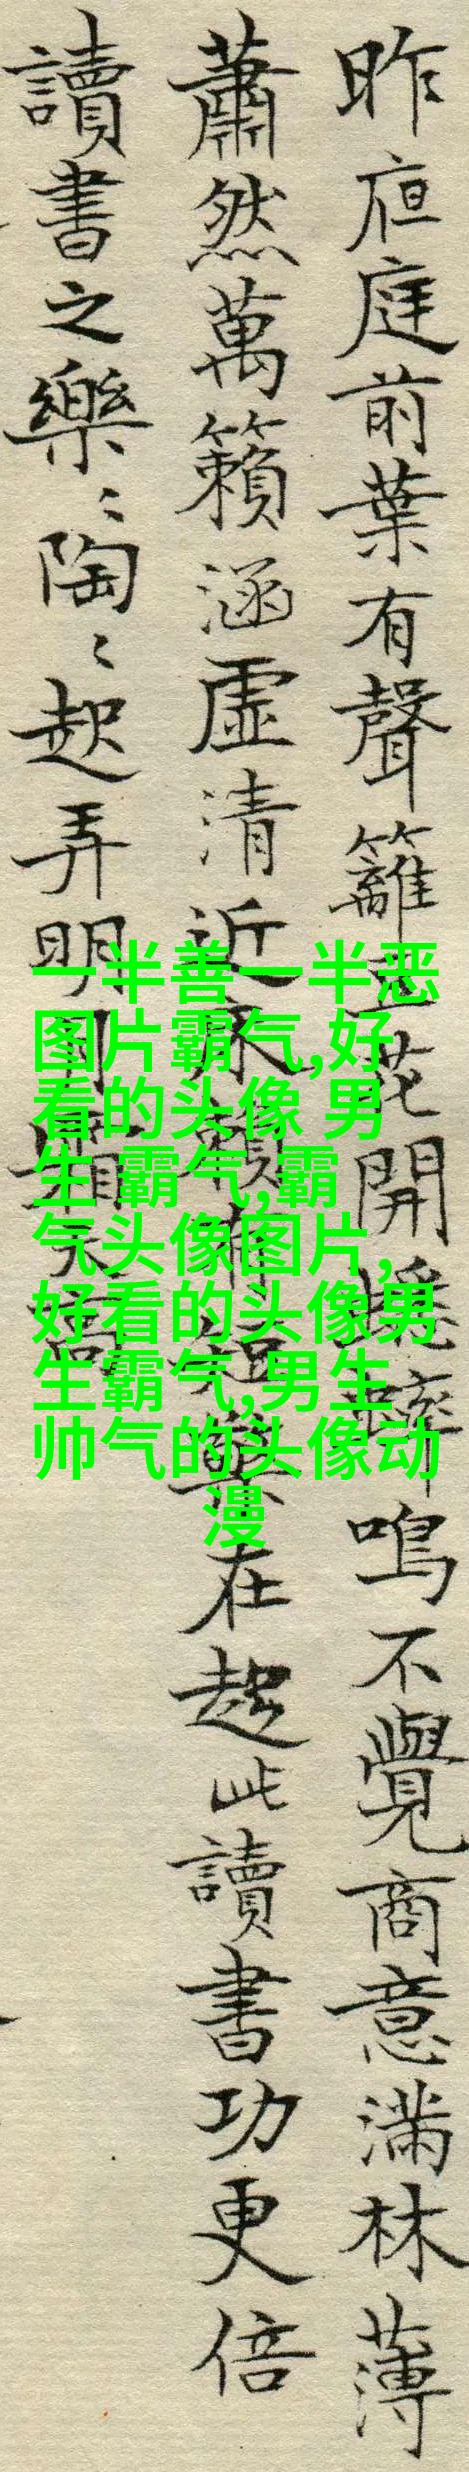 昨夜庭前葉有聲籬豆花開蟋蟀鳴不覺商意滿林薄
蕭然萬籟涵虛清近床賴有短檠在趁此讀書功更倍
讀書之樂〻陶〻起弄明月霜天高
一半善一半恶
图片霸气,好
看的头像 男
生 霸气,霸
气头像图片,
好看的头像男
生霸气,男生
帅气的头像动
漫